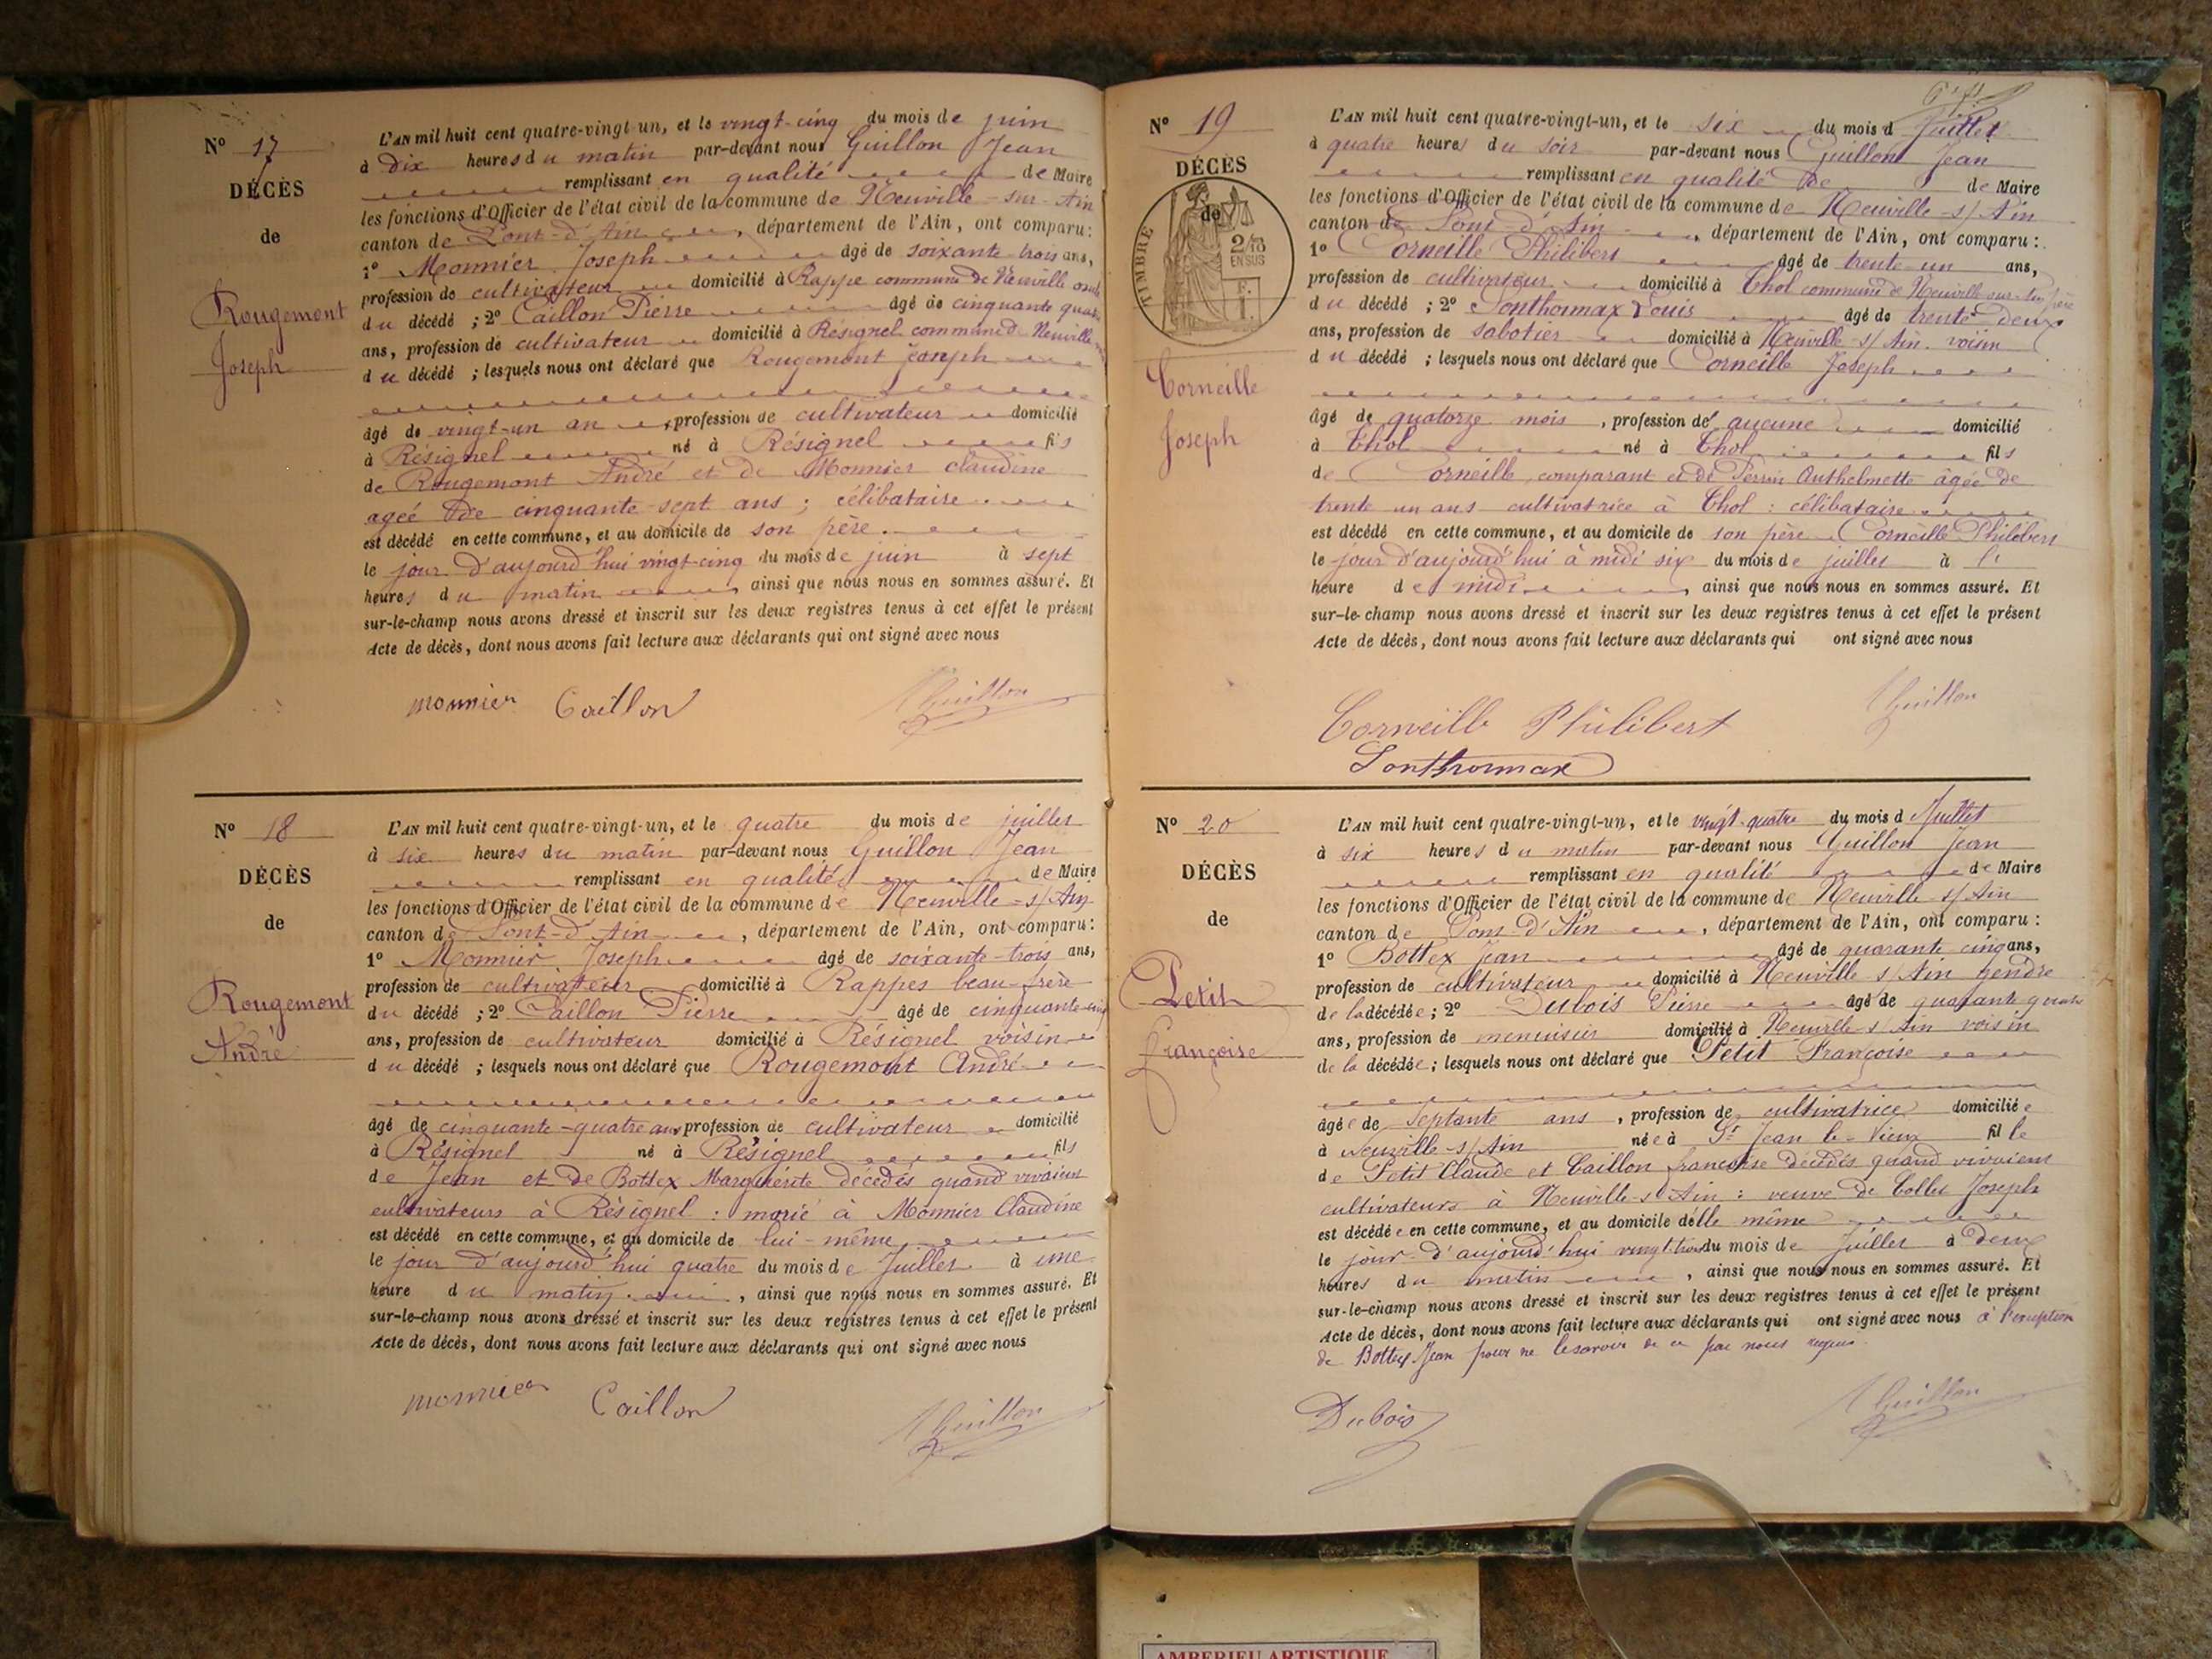 N° 17
DÉCÈS
de
Rougemont
Joseph
L'AN mil huit cent quatre-vingt-un, et le vingt-cinq du mois de juin
à dix heures du matin par-devant nous Guillon Jean
remplissant en qualité de Maire
les fonctions d'Officier de l'état civil de la commune de Neuville-sur-Ain
canton de Pont-d'Ain, département de l'Ain, ont comparu :
1° Monnier Joseph âgé de soixante-trois ans,
profession de cultivateur domicilié à Rappe commune de Neuville oncle
du décédé ; 2° Caillon Pierre âgé de cinquante quatre
ans, profession de cultivateur domicilié à Résignel commune de Neuville
du décédé ; lesquels nous ont déclaré que Rougemont Joseph
âgé de vingt-un an, profession de cultivateur domicilié
à Résignel né à Résignel fils
de Rougemont André et de Monnier Claudine
ageé de cinquante-sept ans ; célibataire
est décédé en cette commune, et au domicile de son père
le jour d'aujourd'hui vingt-cinq du mois de juin à sept
heures du matin, ainsi que nous nous en sommes assuré. Et
sur-le-champ nous avons dressé et inscrit sur les deux registres tenus à cet effet le présent
Acte de décès, dont nous avons fait lecture aux déclarants qui ont signé avec nous
monnier Caillon JGuillon
N° 18
DÉCÈS
de
Rougemont
André
L'AN mil huit cent quatre-vingt-un, et le quatre du mois de juillet
à six heures du matin par-devant nous Guillon Jean
remplissant en qualité de Maire
les fonctions d'Officier de l'état civil de la commune de Neuville-s/Ain
canton de Pont-d'Ain, département de l'Ain, ont comparu :
1° Monnier Joseph âgé de soixante-trois ans,
profession de cultivateur domicilié à Rappes beau-frère
du décédé ; 2° Caillon Pierre âgé de cinquante-cinq
ans, profession de cultivateur domicilié à Résignel voisin
du décédé ; lesquels nous ont déclaré que Rougemont André
âgé de cinquante-quatre ans profession de cultivateur domicilié
à Résignel né à Résignel fils
de Jean et de Bottex Marguerite décédés quand vivaient
cultivateurs à Résignel : marié à Monnier Claudine
est décédé en cette commune, et au domicile de lui-même
le jour d'aujourd'hui quatre du mois de Juillet à une
heure du matin, ainsi que nous nous en sommes assuré. Et
sur-le-champ nous avons dressé et inscrit sur les deux registres tenus à cet effet le présent
Acte de décès, dont nous avons fait lecture aux déclarants qui ont signé avec nous
monnier Caillon JGuillon
N° 19
DÉCÈS
de
TIMBRE
2/10
EN SUS
F.
1
Corneille
Joseph
L'AN mil huit cent quatre-vingt-un, et le six du mois d Juillet
à quatre heures du soir par-devant nous Guillon Jean
remplissant en qualité de de Maire
les fonctions d'Officier de l'état civil de la commune de Neuville-s/Ain
canton de Pont-d'Ain, département de l'Ain, ont comparu :
1° Corneille Philibert âgé de trente-un ans,
profession de cultivateur domicilié à Thol commune de Neuville-sur-Ain père
du décédé ; 2° Ponthormax Louis âgé de trente deux
ans, profession de sabotier domicilié à Neuville-s/Ain voisin
du décédé ; lesquels nous ont déclaré que Corneille Joseph
âgé de quatorze mois, profession de aucune domicilié
à Thol né à Thol fils
de Corneille, comparant et de Perrin Anthelmette âgée de
trente un ans cultivatrice à Thol : célibataire
est décédé en cette commune, et au domicile de son père Corneille Philibert
le jour d'aujourd'hui à midi six du mois de juillet à l'
heure de midi, ainsi que nous nous en sommes assuré. Et
sur-le-champ nous avons dressé et inscrit sur les deux registres tenus à cet effet le présent
Acte de décès, dont nous avons fait lecture aux déclarants qui ont signé avec nous
Corneille Philibert JGuillon
Ponthormax
N° 20
DÉCÈS
de
Petit
Françoise
L'AN mil huit cent quatre-vingt-un, et le vingt-quatre du mois d Juillet
à six heures du matin par-devant nous Guillon Jean
remplissant en qualité de Maire
les fonctions d'Officier de l'état civil de la commune de Neuville-s/Ain
canton de Pont-d'Ain, département de l'Ain, ont comparu :
1° Bottex Jean âgé de quarante cinq ans,
profession de cultivateur domicilié à Neuville-s/Ain gendre
de la décédée ; 2° Dubois Pierre âgé de quarante quatre
ans, profession de menuisier domicilié à Neuville-s/Ain voisin
de la décédée ; lesquels nous ont déclaré que Petit Françoise
âgée de septante ans, profession de cultivatrice domiciliée
à Neuville-s/Ain née à St Jean-le-Vieux fille
de Petit Claude et Caillon françoise décédés quand vivaient
cultivateurs à Neuville-s/Ain : veuve de Collet Joseph
est décédée en cette commune, et au domicile delle même
le jour d'aujourd'hui vingt-trois du mois de Juillet à deux
heures du matin, ainsi que nous nous en sommes assuré. Et
sur-le-champ nous avons dressé et inscrit sur les deux registres tenus à cet effet le présent
Acte de décès, dont nous avons fait lecture aux déclarants qui ont signé avec nous à l'exception
de Bottex Jean pour ne le savoir de ce par nous requis
Dubois JGuillon
AMBERIEU ARTISTIQUE